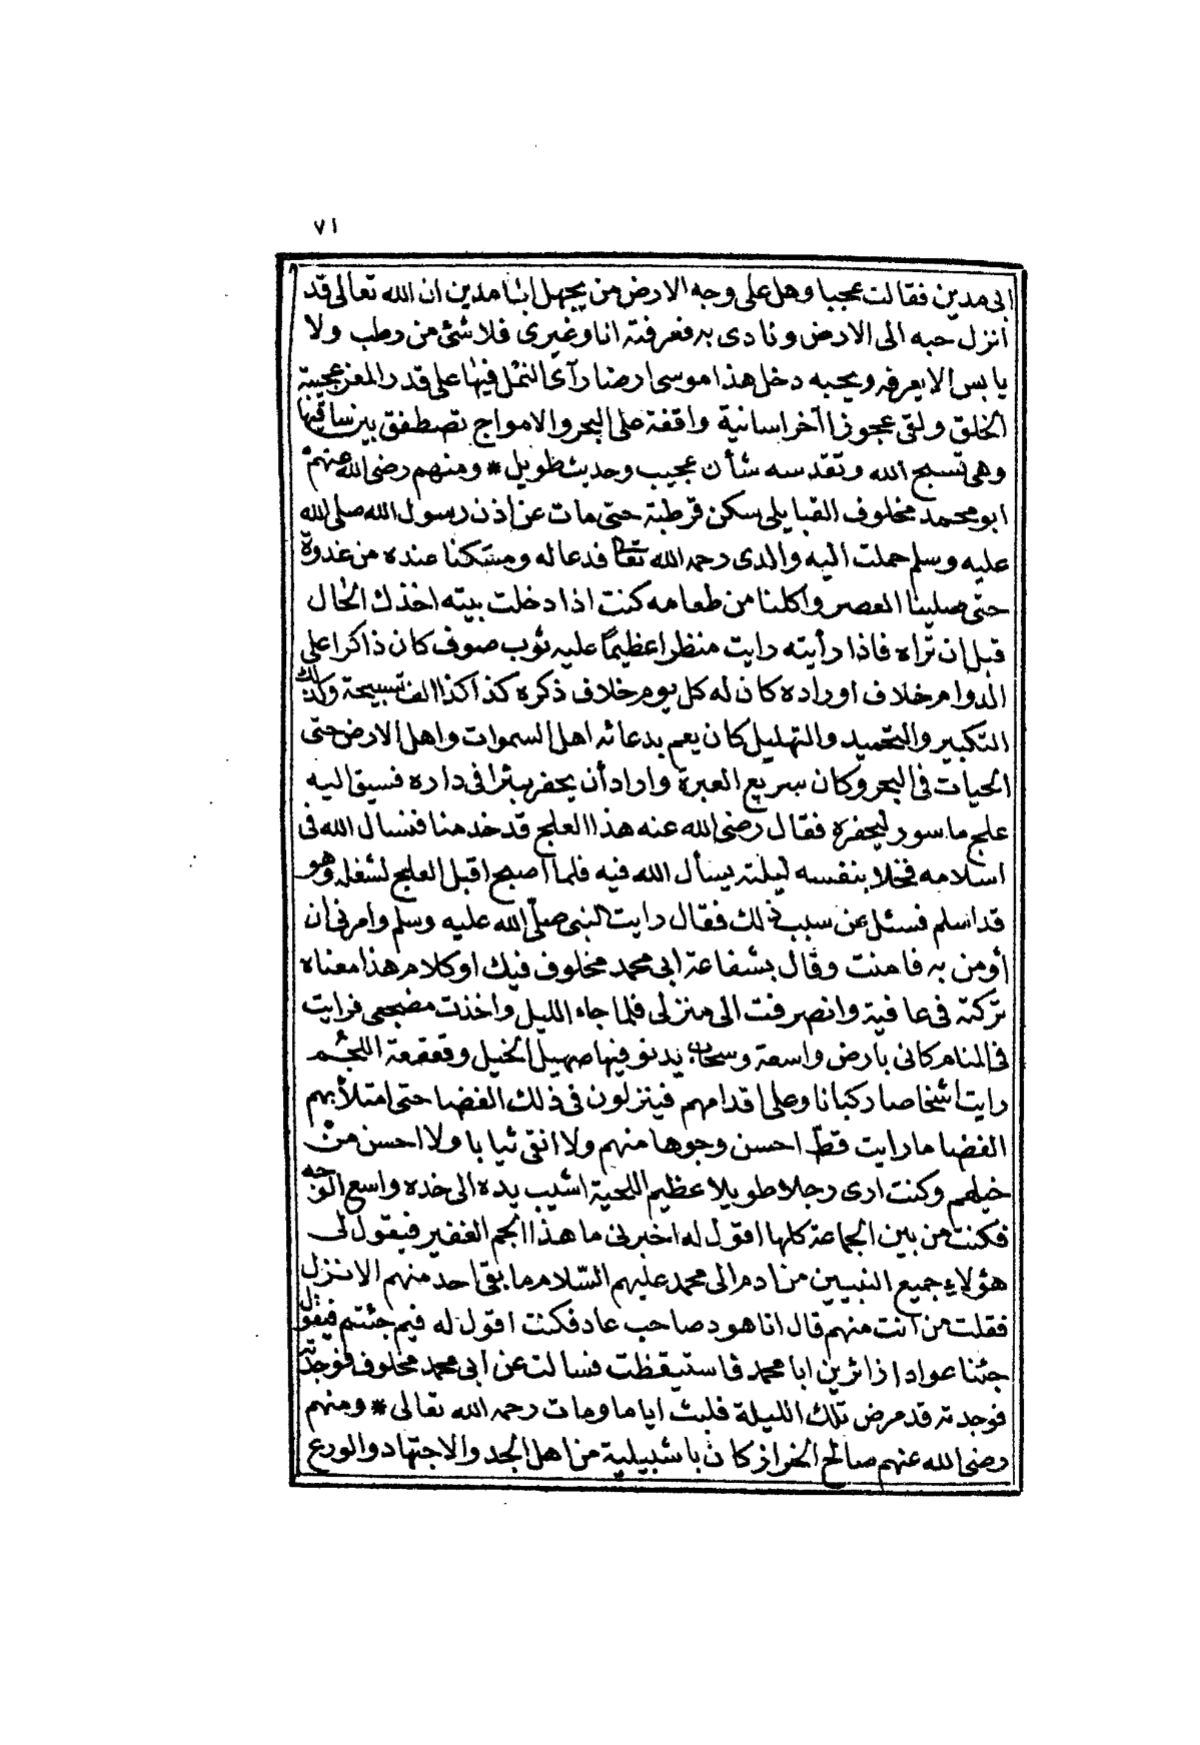 ٧١
ابى مدين فقالت عجبا وهل على وجه الارض من يجهل ابا مدين ان الله تعالى قد
أنزل حبه الى الارض ونادى به فعرفته انا وغيرى فلا شئ من رطب ولا
يابس الا يعرفه ويحبه دخل هذا موسى ارضا رآى النمل فيها على قدر المعز عجيبة
الخلق ولقى عجوزا خراسانية واقفة على البحر والامواج تصطفق بين ساقيها
وهى تسبح الله وتقدسه شأن عجيب وحديث طويل * ومنهم رضى الله عنهم
ابو محمد مخلوف القبايلى سكن قرطبة حتى مات عن اذن رسول الله صلى الله
عليه وسلم حملت اليه والدى رحمه الله تعالى فدعا له ومسكنا عنده من غدوة
حتى صلينا العصر واكلنا من طعامه كنت اذا دخلت بيته اخذك الحال
قبل ان تراه فاذا رأيته رايت منظرا عظيمًا عليه ثوب صوف كان ذاكرا على
الدوام خلاف اوراده كان له كل يوم خلاف ذكره كذا كذا الف تسبيحة وكذلك
التكبير والتحميد والتهليل كان يعم بدعائه اهل السموات واهل الارض حتى
الحيات فى البحر وكان سريع العبرة واراد أن يحفر بئرا فى داره فسيق اليه
علج ماسور ليحفره فقال رضى الله عنه هذا العلج قد خدمنا فنسال الله فى
اسلامه فخلا بنفسه ليلته يسأل الله فيه فلما اصبح اقبل العلج لشغله وهو
قد اسلم فسئل عن سبب ذلك فقال رايت النبى صلّى الله عليه وسلم وامرنى ان
أومن به فامنت وقال بشفاعة ابى محمد مخلوف فيك او كلام هذا معناه
تركته فى عافية وانصرفت الى منزلى فلما جاء الليل واخذت مضجعى فرايت
فى المنام كانى بأرض واسعة وسحاب يدنو فيها صهيل الخيل وقعقعة اللجم
رايت اشخاصا ركبانا وعلى اقدامهم فينزلون فى ذلك الفضا حتى امتلأ بهم
الفضا ما رايت قطّ احسن وجوها منهم ولا انقى ثيابا ولا احسن من
خيلهم وكنت ارى رجلا طويلا عظيم اللحية اشيب يده الى خده واسع الوجه
فكنت من بين الجماعة كلها اقول له اخبرنى ما هذا الجم الغفير فيقول لى
هؤلاء جميع النبيين من ادم الى محمد عليهم السّلام ما بقى احد منهم الا نزل
فقلت من آنت منهم قال انا هود صاحب عاد فكنت اقول له فيم جئتم فيقول
جئنا عوادا زائرين ابا محمد فاستيقظت فسالت عن ابى محمد مخلوف فوجدته
فوجدته قد مرض تلك الليلة فلبث اياما ومات رحمه الله تعالى * ومنهم
رضى الله عنهم صالح الخراز كان باشبيلية من اهل الجد والاجتهاد والورع